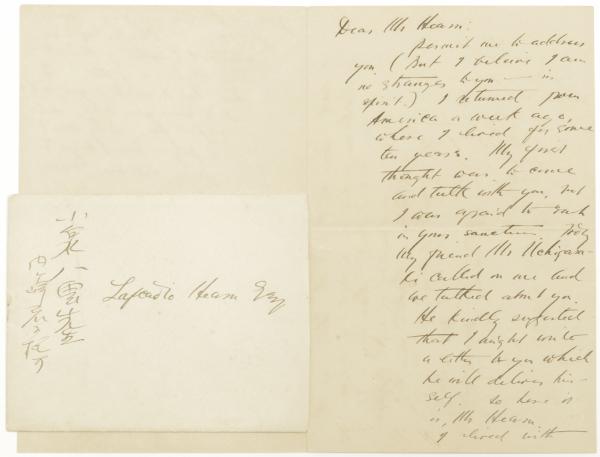 Dear Mr Hearn:
Permit me to address
you (But I believe I am
no stranger to you — in
spirit.) I returned from
America a week ago,
where I lived for some
ten years. My first
thought was to come
and talk with you, but
I was afraid to
in your sanctum. Today
my friend Mr Uchigasa-
ki called on me and
we talked about you.
He kindly suggested
that I might write
a letter to you which
he will deliver him-
self. So here it
is, Mr Hearn.
I lived with
小泉八雲先生
内ヶ崎君ニ托す
Lafcadio Hearn Esq